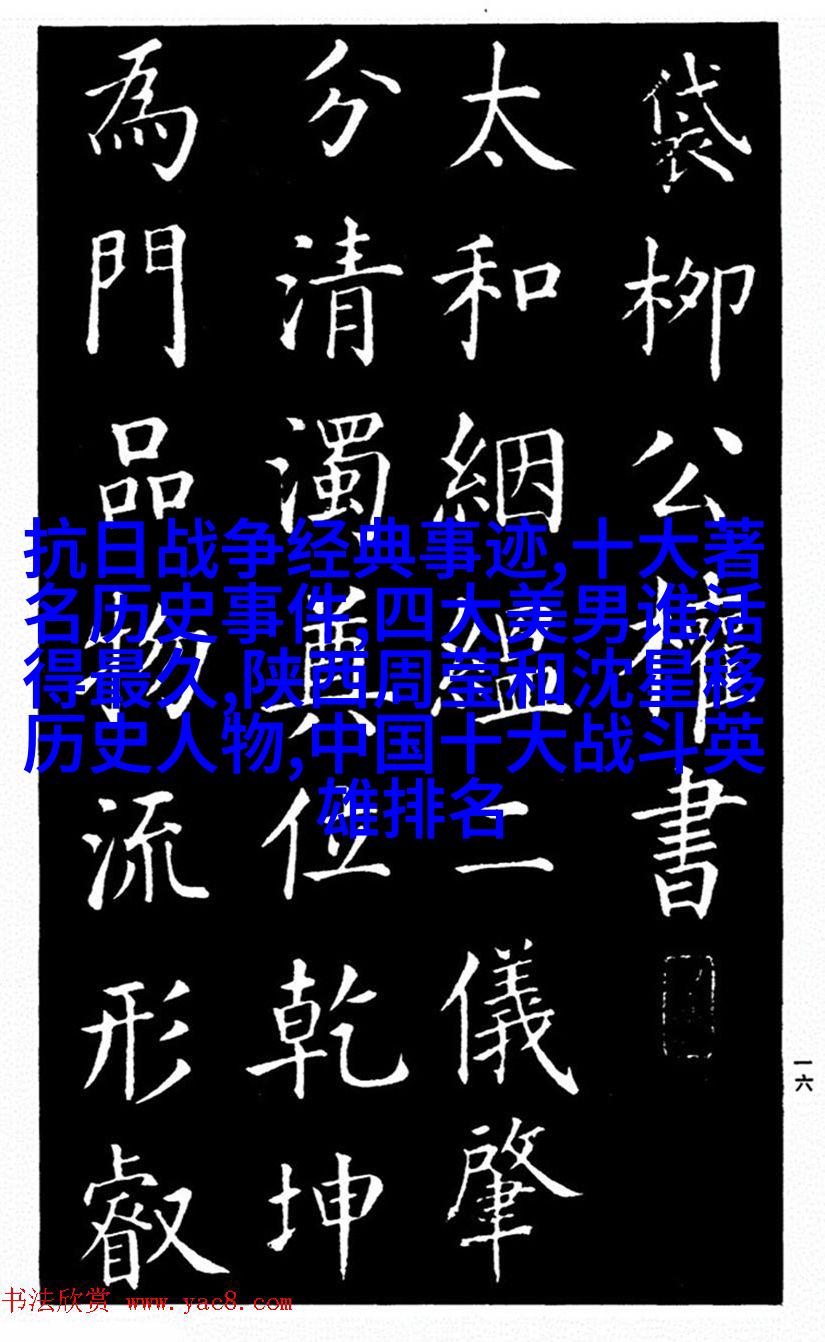 袋柳公權書
太和絪緼二儀肇
分清濁奠位乾坤
為門品物流形叡
抗日战争经典事迹,十大著
名历史事件,四大美男谁活
得最久,陕西周莹和沈星移
历史人物,中国十大战斗英
雄排名
一六
书法欣赏 www.yac8.com